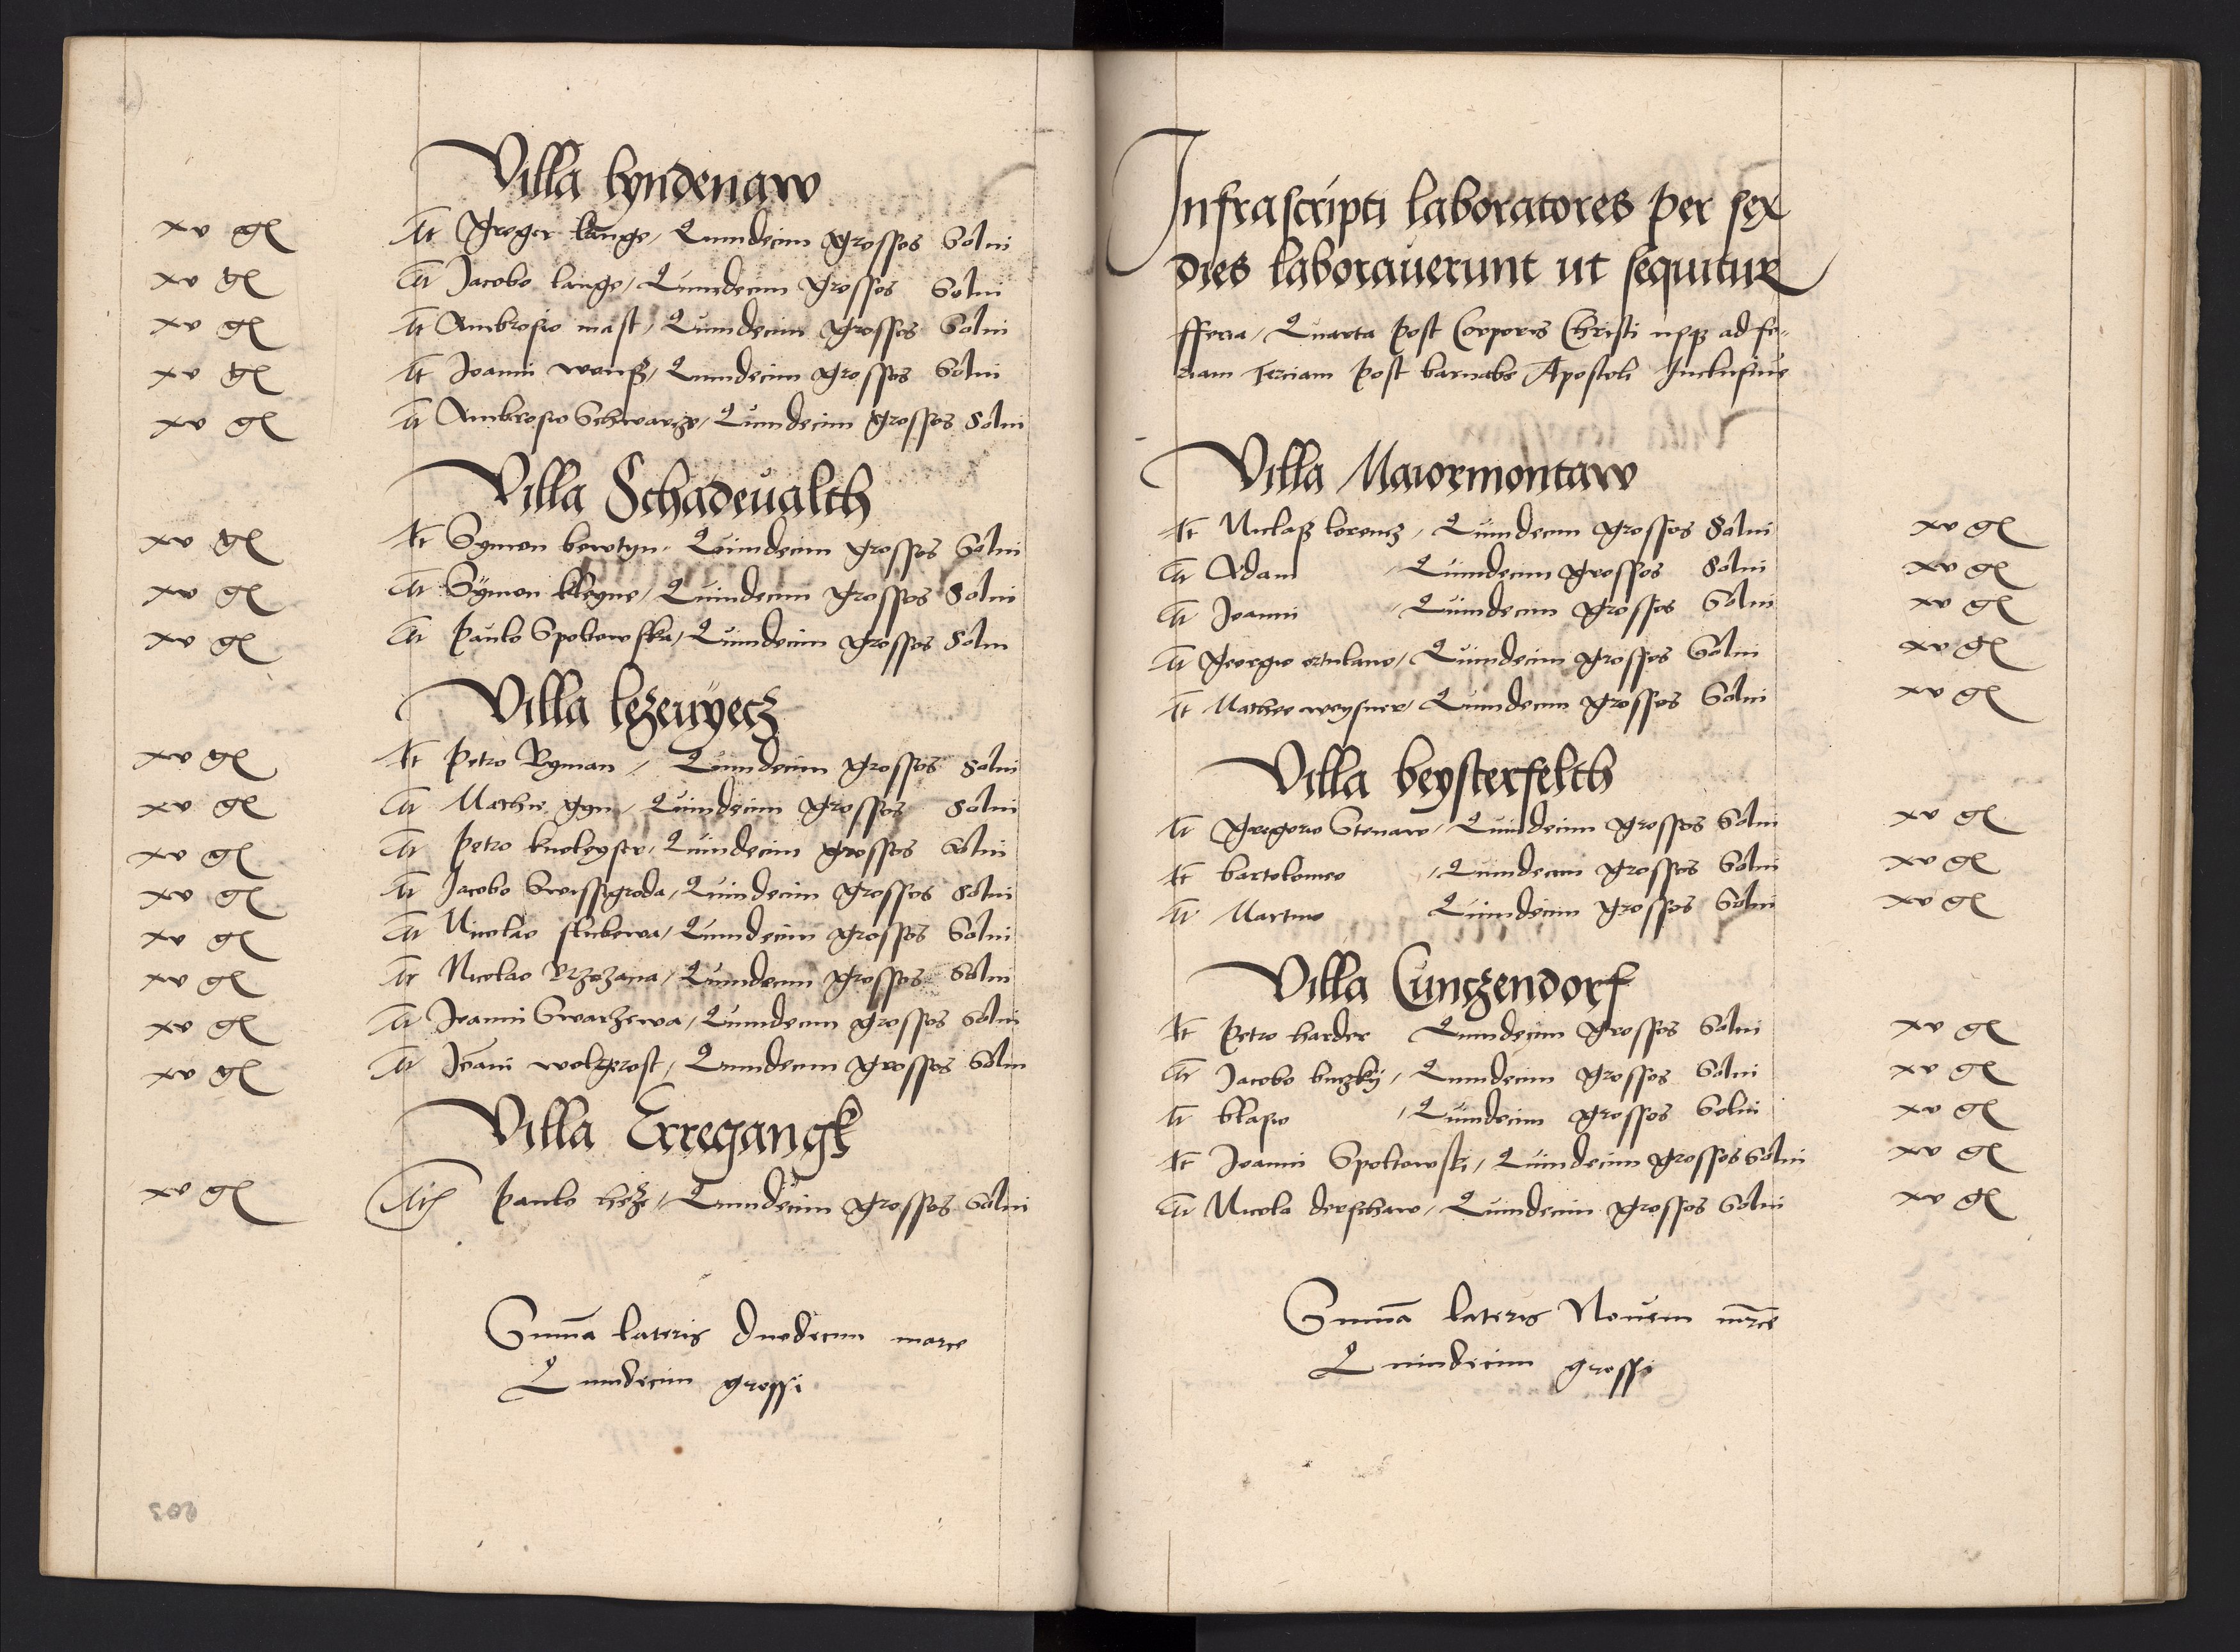 Villa lyndenaw
xv gꝭ It Greger lange / Quindecim grossos Solui
xv gꝭ It Jacobo lange / Quindecim grossos Solui
xv gꝭ It Ambrosio mast / Quindecim grossos Solui
xv gꝭ It Joanni / Quindecim grossos Solui
xv gꝭ It Ambrosio Schwarcze / Quindecim grossos Solui
Villa Schadeualth
xv gꝭ It Symon / Quindecim grossos Solui
xv gꝭ It Symon kleyne / Quindecim grossos Solui
xv gꝭ It Paulo Spoltowska / Quindecim grossos Solui
Villa
xv gꝭ It Petro Ryman / Quindecim grossos Solui
xv gꝭ It / Quindecim grossos Solui
xv gꝭ It Petro / Quindecim grossos Solui
xv gꝭ It Jacobo / Quindecim grossos Solui
xv gꝭ It Nicolao / Quindecim grossos Solui
xv gꝭ It Nicolao / Quindecim grossos Solui
xv gꝭ It Joanni / Quindecim grossos Solui
xv gꝭ It / Quindecim grossos Solui
Villa Erregangk
xv gꝭ It Paulo / Quindecim grossos Solui
Suma lateris duodecim marce
Quindecim grossi
203
Infrascripti laboratores per sex
dies laborauerunt ut sequitur
fferia / Quarta post Corporis Christi usqz ad fe-
riam Terciam post barnabe Apostoli Inclusiue
Villa Maiormontaw
It Niclaß lorencz / Quindecim grossos Solui xv gꝭ
It Adam / Quindecim grossos Solui xv gꝭ
It Joanni / Quindecim grossos Solui xv gꝭ
It Georgio ortulano / Quindecim grossos Solui xv gꝭ
It Matheo weysner / Quindecim grossos Solui xv gꝭ
Villa beysterfelth
It Gregorio Stenaw / Quindecim grossos Solui xv gꝭ
It bartolomeo / Quindecim grossos Solui xv gꝭ
It Martino Quindecim grossos Solui xv gꝭ
Villa Cunczendorf
It Petro harder Quindecim grossos Solui xv gꝭ
It Jacobo / Quindecim grossos Solui xv gꝭ
It blasio / Quindecim grossos Solui xv gꝭ
It Joanni Spoltowski / Quindecim grossos Solui xv gꝭ
It Nicolao derschaw / Quindecim grossos Solui xv gꝭ
Suma lateris Nouem mrce
Quindecim grossi